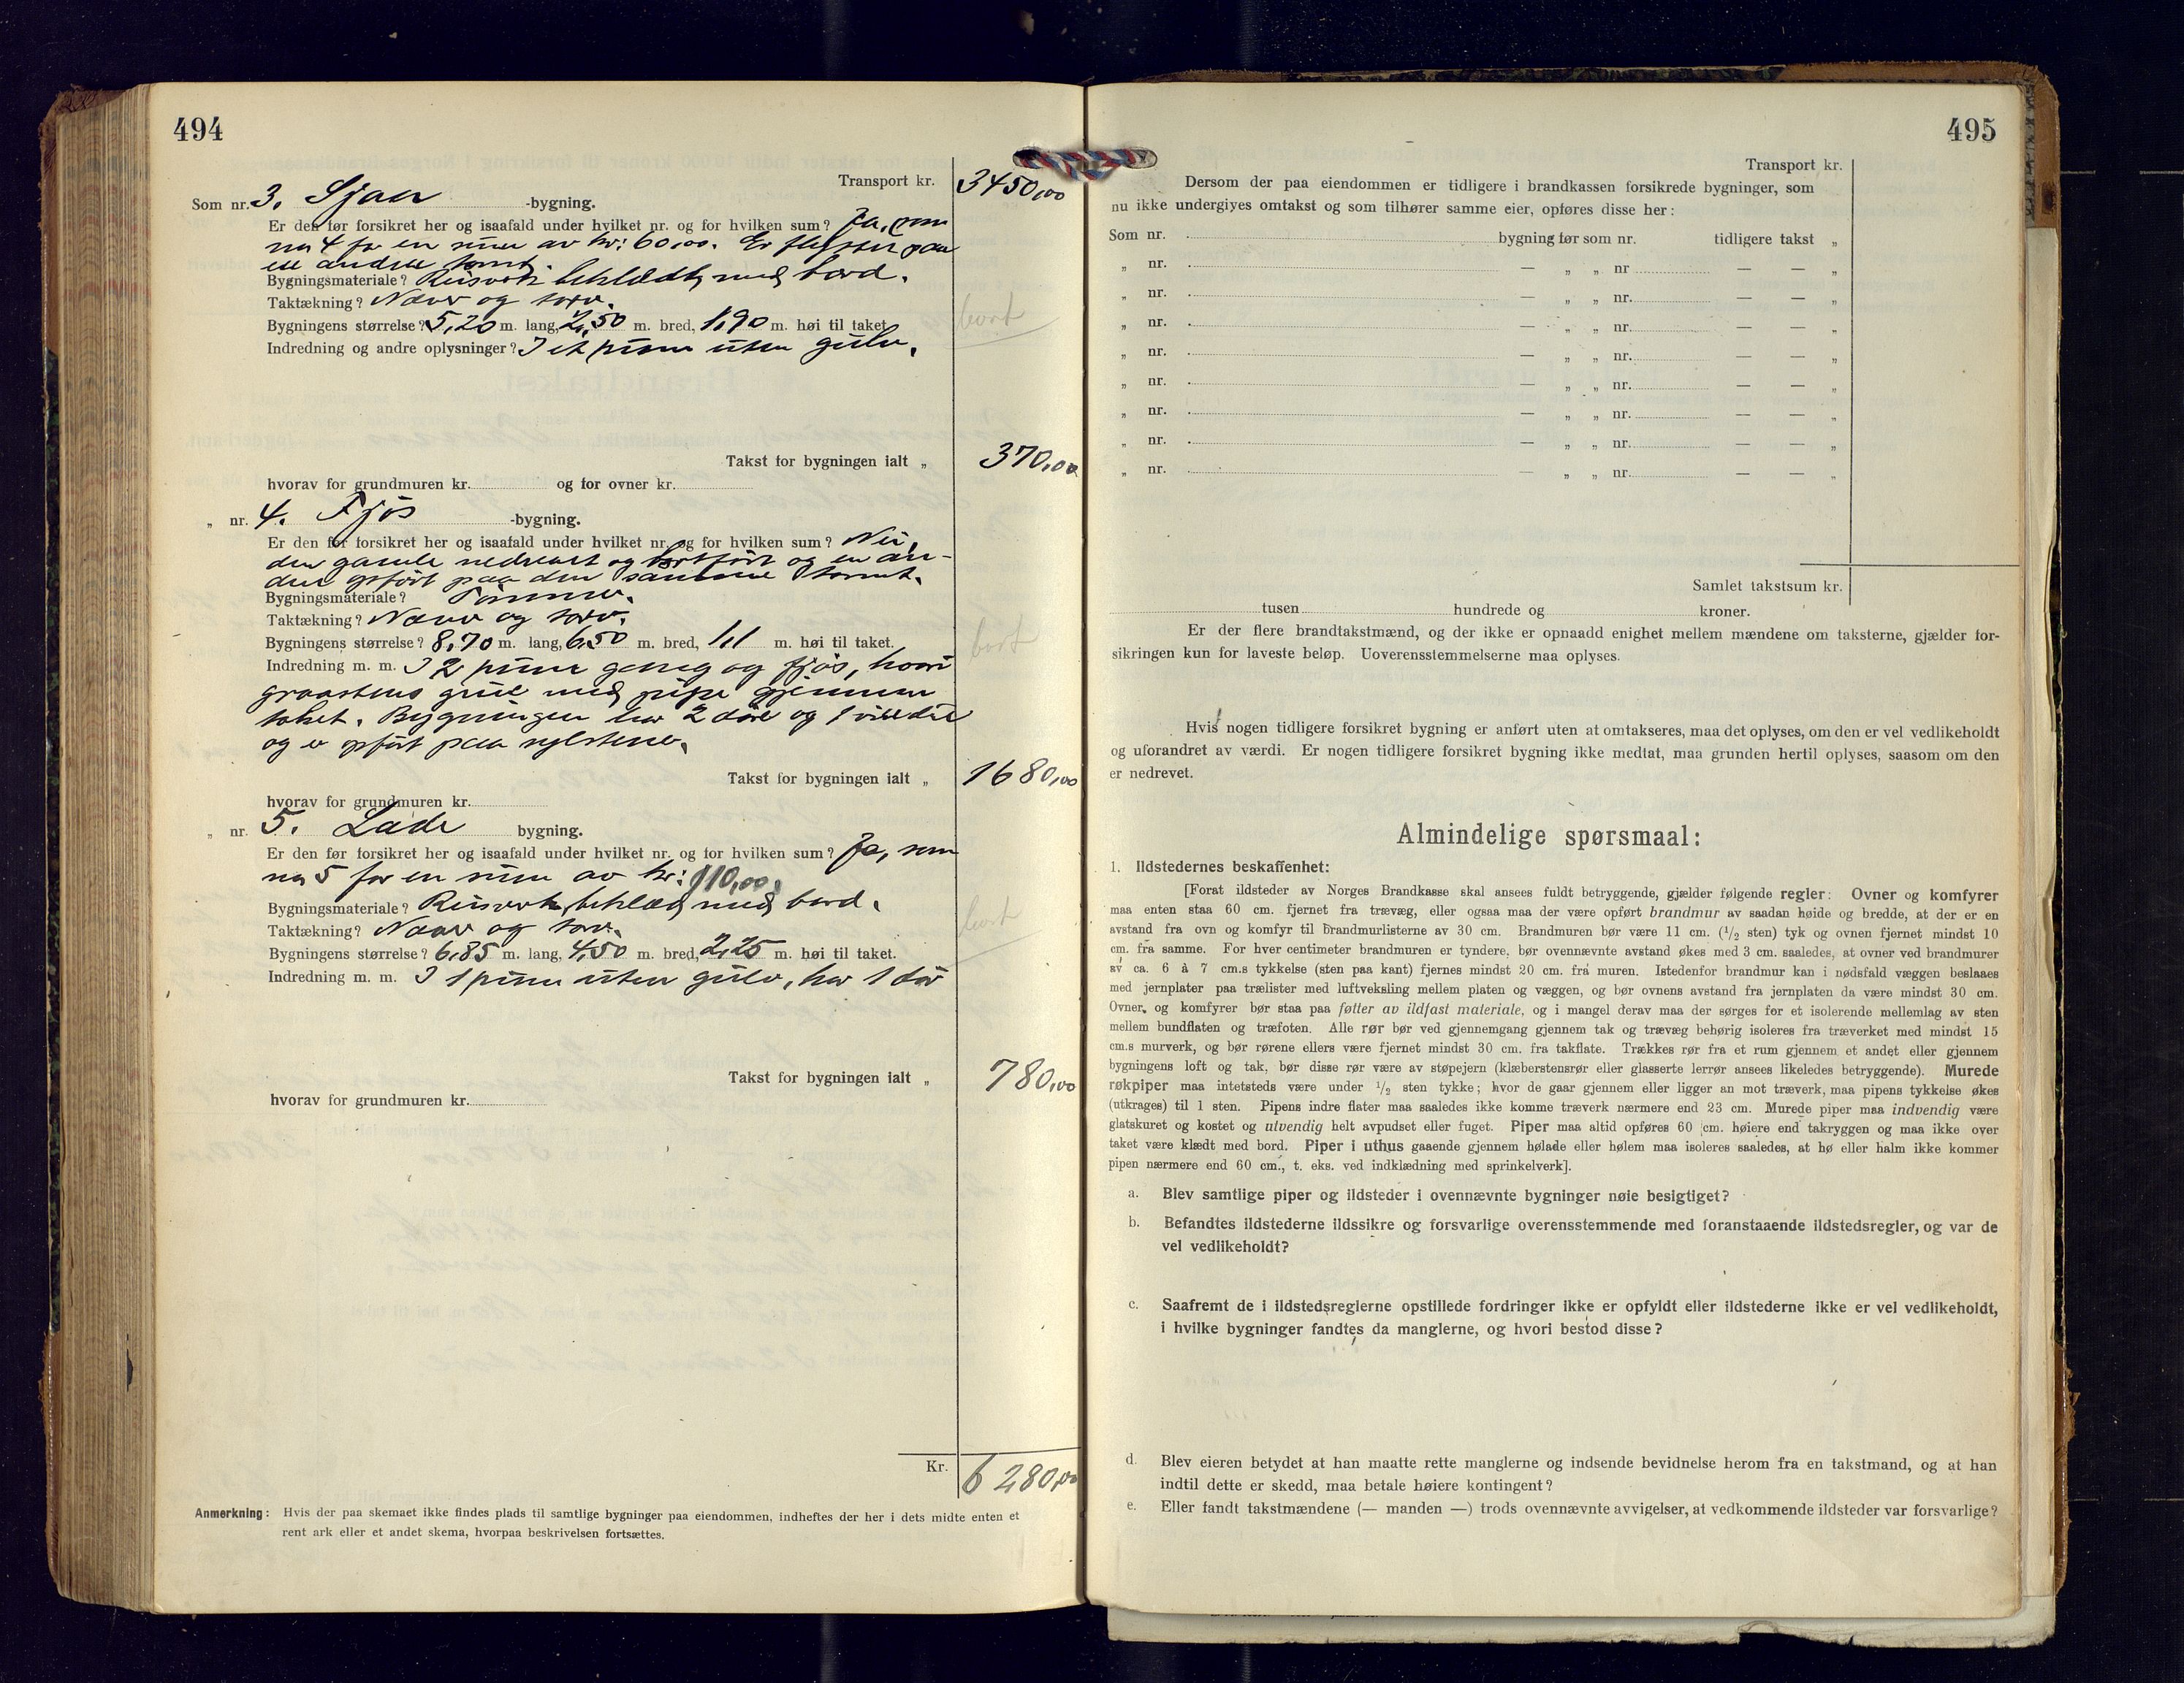 494
Transport kr. 3450,00
Som nr. 3. Sjaa -bygning.
Er den før forsikret her og isaafald under hvilket nr. og for hvilken sum? Ja, som
nr 4 for en sum av kr: 60,00. Er flyttet paa
en anden tomt.
Bygningsmateriale? Reisverk beklædt med bord.
Taktækning? Næver og torv.
Bygningens størrelse? 5,20 m. lang, 2,50 m. bred, 1,90 m. høi til taket
bort
Indredning og andre oplysninger? I et rum uten gulv.
Takst for bygningen ialt „ 370,00
hvorav for grundmuren kr. og for ovner kr.
„ nr. 4. Fjøs -bygning.
Er den før forsikret her og isaafald under hvilket nr. og for hvilken sum? Nei,
den gamle nedrevet og bortført og en an-
den opført paa den samme tomt.
Bygningsmateriale? Tømmer.
Taktækning? Næver og torv.
Bygningens størrelse? 8,70 m. lang, 6,50 m. bred, 1,1 m. høi til taket.
bort
Indredning m. m. I 2 rum gang og fjøs, hvori
graastens grue med pipe gjennem
taket. Bygningen har 2 døre og 1 vindu
og er opført paa sylstener.
Takst for bygningen ialt „ 1680,00
hvorav for grundmuren kr.
„ nr. 5. Lade bygning.
Er den før forsikret her og isaafald under hvilket nr. og for hvilken sum? Ja, som
nr 5 for en sum av kr: 110,00.
Bygningsmateriale? Reisverk beklæd med bord.
Taktækning? Næver og torv.
bort
Bygningens størrelse? 6,85 m. lang, 4,50 m. bred, 2,25 m. høi til taket.
Indredning m. m. I 1 rum uten gulv, har 1 dør
Takst for bygningen ialt „ 780,00
hvorav for grundmuren kr.
Kr. 6280,00
Anmerkning: Hvis der paa skemaet ikke findes plads til samtlige bygninger paa eiendommen, indheftes der her i dets midte enten et
rent ark eller et andet skema, hvorpaa beskrivelsen fortsættes.
495
Transport kr.
Dersom der paa eiendommen er tidligere i brandkassen forsikrede bygninger, som
nu ikke undergives omtakst og som tilhører samme eier, opføres disse her:
Som nr. bygning før som nr. tidligere takst „
„ nr. — „ „ nr — — „
„ nr. — „ „ nr. — — „
„ nr. — „ „ nr. — — „
„ nr. — „ „ nr. — — „
„ nr. — „ „ nr. — — „
„ nr. — „ „ nr. — — „
„ nr. — „ „ nr. — — „
„ nr. — „ „ nr. — — „
Samlet takstsum kr.
tusen hundrede og kroner.
Er der flere brandtakstmænd, og der ikke er opnaadd enighet mellem mændene om taksterne, gjælder for-
sikringen kun for laveste beløp. Uoverensstemmelserne maa oplyses.
Hvis nogen tidligere forsikret bygning er anført uten at omtakseres, maa det oplyses, om den er vel vedlikeholdt
og uforandret av værdi. Er nogen tidligere forsikret bygning ikke medtat, maa grunden hertil oplyses, saasom om den
er nedrevet.
Almindelige spørsmaal:
1. Ildstedernes beskaffenhet:
[Forat ildsteder av Norges Brandkasse skal ansees fuldt betryggende, gjælder følgende regler: Ovner og komfyrer
maa enten staa 60 cm. fjernet fra trævæg, eller ogsaa maa der være opført brandmur av saadan høide og bredde, at der er en
avstand fra ovn og komfyr til brandmurlisterne av 30 cm. Brandmuren bør være 11 cm. (1/2 sten) tyk og ovnen fjernet mindst 10
cm. fra samme. For hver centimeter brandmuren er tyndere, bør ovennævnte avstand økes med 3 cm. saaledes, at ovner ved brandmurer
av ca. 6 à 7 cm.s tykkelse (sten paa kant) fjernes mindst 20 cm. fra muren. Istedenfor brandmur kan i nødsfald væggen beslaaes
med jernplater paa trælister med luftveksling mellem platen og væggen, og bør ovnens avstand fra jernplaten da være mindst 30 cm.
Ovner og komfyrer bør staa paa føtter av ildfast materiale, og i mangel derav maa der sørges for et isolerende mellemlag av sten
mellem bundflaten og træfoten. Alle rør bør ved gjennemgang gjennem tak og trævæg behørig isoleres fra træverket med mindst 15
cm.s murverk, og bør rørene ellers være fjernet mindst 30 cm. fra takflate. Trækkes rør fra et rum gjennem et andet eller gjennem
bygningens loft og tak, bør disse rør være av støpejern (klæberstensrør eller glasserte lerrør ansees likeledes betryggende). Murede
røkpiper maa intetsteds være under 1/2 sten tykke; hvor de gaar gjennem eller ligger an mot træverk, maa pipens tykkelse økes
(utkrages) til 1 sten. Pipens indre flater maa saaledes ikke komme træverk nærmere end 23 cm. Murede piper maa indvendig være
glatskuret og kostet og utvendig helt avpudset eller fuget. Piper maa altid opføres 60 cm. høiere end takryggen og maa ikke over
taket være klædt med bord. Piper i uthus gaaende gjennem hølade eller hølem maa isoleres saaledes, at hø eller halm ikke kommer
pipen nærmere end 60 cm., t. eks. ved indklædning med sprinkelverk].
a. Blev samtlige piper og ildsteder i ovennævnte bygninger nøie besigtiget?
b. Befandtes ildstederne ildssikre og forsvarlige overensstemmende med foranstaaende ildstedsregler, og var de
vel vedlikeholdt?
c. Saafremt de i ildstedsreglerne opstillede fordringer ikke er opfyldt eller ildstederne ikke er vel vedlikeholdt,
i hvilke bygninger fandtes da manglerne, og hvori bestod disse?
d. Blev eieren betydet at han maatte rette manglerne og indsende bevidnelse herom fra en takstmand, og at han
indtil dette er skedd, maa betale høiere kontingent?
e. Eller fandt takstmændene (— manden —) trods ovennævnte avvigelser, at vedkommende ildsteder var forsvarlige?